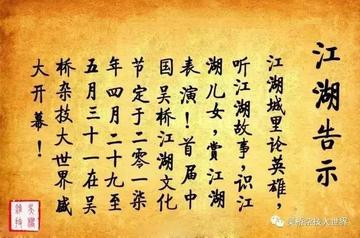 江湖告示
江湖城里论英雄,
听江湖故事,识江
湖儿女,赏江湖
表演!首届中
国吴桥江湖文化
节定于二零一柒
年四月二十九至
五月三十一在吴
桥杂技大世界盛
大开幕!
吴桥杂技大世界